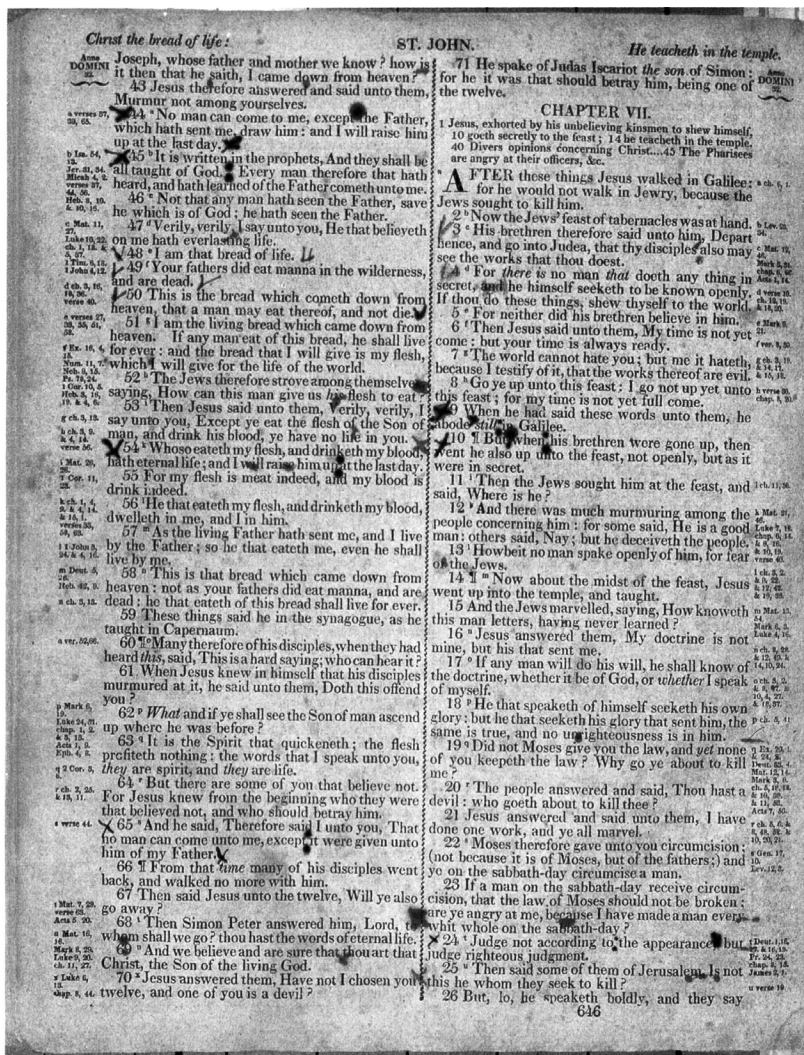 Christ the bread of life:
ST. JOHN.
He teacheth in the temple.
Anno
DOMINI
32.
Joseph, whose father and mother we know? how is
it then that he saith, I came down from heaven?
43 Jesus therefore answered and said unto them,
Murmur not among yourselves.
44 No man can come to me, except the Father,
which hath sent me, draw him: and I will raise him
up at the last day.
45 b It is written in the prophets, And they shall be
all taught of God. Every man therefore that hath
heard, and hath learned of the Father cometh unto me.
46 Not that any man hath seen the Father, save
he which is of God; he hath seen the Father.
47 d Verily, verily, I say unto you, He that believeth
on me hath everlasting life.
48 e I am that bread of life.
49 f Your fathers did eat manna in the wilderness,
and are dead.
50 This is the bread which cometh down from
heaven, that a man may eat thereof, and not die.
51 g I am the living bread which came down from
heaven. If any man eat of this bread, he shall live
for ever: and the bread that I will give is my flesh,
which I will give for the life of the world.
52 h The Jews therefore strove among themselves
saying, How can this man give us his flesh to eat?
53 i Then Jesus said unto them, Verily, verily, I
say unto you, Except ye eat the flesh of the Son of
man, and drink his blood, ye have no life in you.
54 k Whoso eateth my flesh, and drinketh my blood,
hath eternal life; and I will raise him up at the last day.
55 For my flesh is meat indeed, and my blood is
drink indeed.
56 l He that eateth my flesh, and drinketh my blood,
dwelleth in me, and I in him.
57 m As the living Father hath sent me, and I live
by the Father; so he that eateth me, even he shall
live by me.
58 n This is that bread which came down from
heaven: not as your fathers did eat manna, and are
dead: he that eateth of this bread shall live for ever.
59 These things said he in the synagogue, as he
taught in Capernaum.
60 ¶ o Many therefore of his disciples, when they had
heard this, said, This is a hard saying; who can hear it?
61 When Jesus knew in himself that his disciples
murmured at it, he said unto them, Doth this offend
you?
62 p What and if ye shall see the Son of man ascend
up where he was before?
63 q It is the Spirit that quickeneth; the flesh
profiteth nothing: the words that I speak unto you,
they are spirit, and they are life.
64 r But there are some of you that believe not.
For Jesus knew from the beginning who they were
that believed not, and who should betray him.
65 s And he said, Therefore said I unto you, That
no man can come unto me, except it were given unto
him of my Father.
66 ¶ From that time many of his disciples went
back, and walked no more with him.
67 Then said Jesus unto the twelve, Will ye also
go away?
68 t Then Simon Peter answered him, Lord, to
whom shall we go? thou hast the words of eternal life.
69 u And we believe and are sure that thou art that
Christ, the Son of the living God.
70 x Jesus answered them, Have not I chosen you
twelve, and one of you is a devil?
71 He spake of Judas Iscariot the son of Simon:
for he it was that should betray him, being one of
the twelve.
Anno
DOMINI
32.
CHAPTER VII.
1 Jesus, exhorted by his unbelieving kinsmen to shew himself,
10 goeth secretly to the feast; 14 he teacheth in the temple.
40 Divers opinions concerning Christ....45 The Pharisees
are angry at their officers, &c.
a AFTER these things Jesus walked in Galilee:
for he would not walk in Jewry, because the
Jews sought to kill him.
2 b Now the Jews' feast of tabernacles was at hand.
3 c His brethren therefore said unto him, Depart
hence, and go into Judea, that thy disciples also may
see the works that thou doest.
4 d For there is no man that doeth any thing in
secret, and he himself seeketh to be known openly.
If thou do these things, shew thyself to the world.
5 e For neither did his brethren believe in him.
6 f Then Jesus said unto them, My time is not yet
come: but your time is always ready.
7 g The world cannot hate you; but me it hateth,
because I testify of it, that the works thereof are evil.
8 h Go ye up unto this feast: I go not up yet unto
this feast; for my time is not yet full come.
9 When he had said these words unto them, he
abode still in Galilee.
10 ¶ But when his brethren were gone up, then
went he also up unto the feast, not openly, but as it
were in secret.
11 i Then the Jews sought him at the feast, and
said, Where is he?
12 k And there was much murmuring among the
people concerning him: for some said, He is a good
man: others said, Nay; but he deceiveth the people.
13 l Howbeit no man spake openly of him, for fear
of the Jews.
14 ¶ m Now about the midst of the feast, Jesus
went up into the temple, and taught.
15 And the Jews marvelled, saying, How knoweth
this man letters, having never learned?
16 n Jesus answered them, My doctrine is not
mine, but his that sent me.
17 o If any man will do his will, he shall know of
the doctrine, whether it be of God, or whether I speak
of myself.
18 p He that speaketh of himself seeketh his own
glory: but he that seeketh his glory that sent him, the
same is true, and no unrighteousness is in him.
19 q Did not Moses give you the law, and yet none
of you keepeth the law? Why go ye about to kill
me?
20 r The people answered and said, Thou hast a
devil: who goeth about to kill thee?
21 Jesus answered and said unto them, I have
done one work, and ye all marvel.
22 s Moses therefore gave unto you circumcision;
(not because it is of Moses, but of the fathers;) and
ye on the sabbath-day circumcise a man.
23 If a man on the sabbath-day receive circum-
cision, that the law of Moses should not be broken;
are ye angry at me, because I have made a man every
whit whole on the sabbath-day?
24 t Judge not according to the appearance, but
judge righteous judgment.
25 u Then said some of them of Jerusalem, Is not
this he whom they seek to kill?
26 But, lo, he speaketh boldly, and they say
646